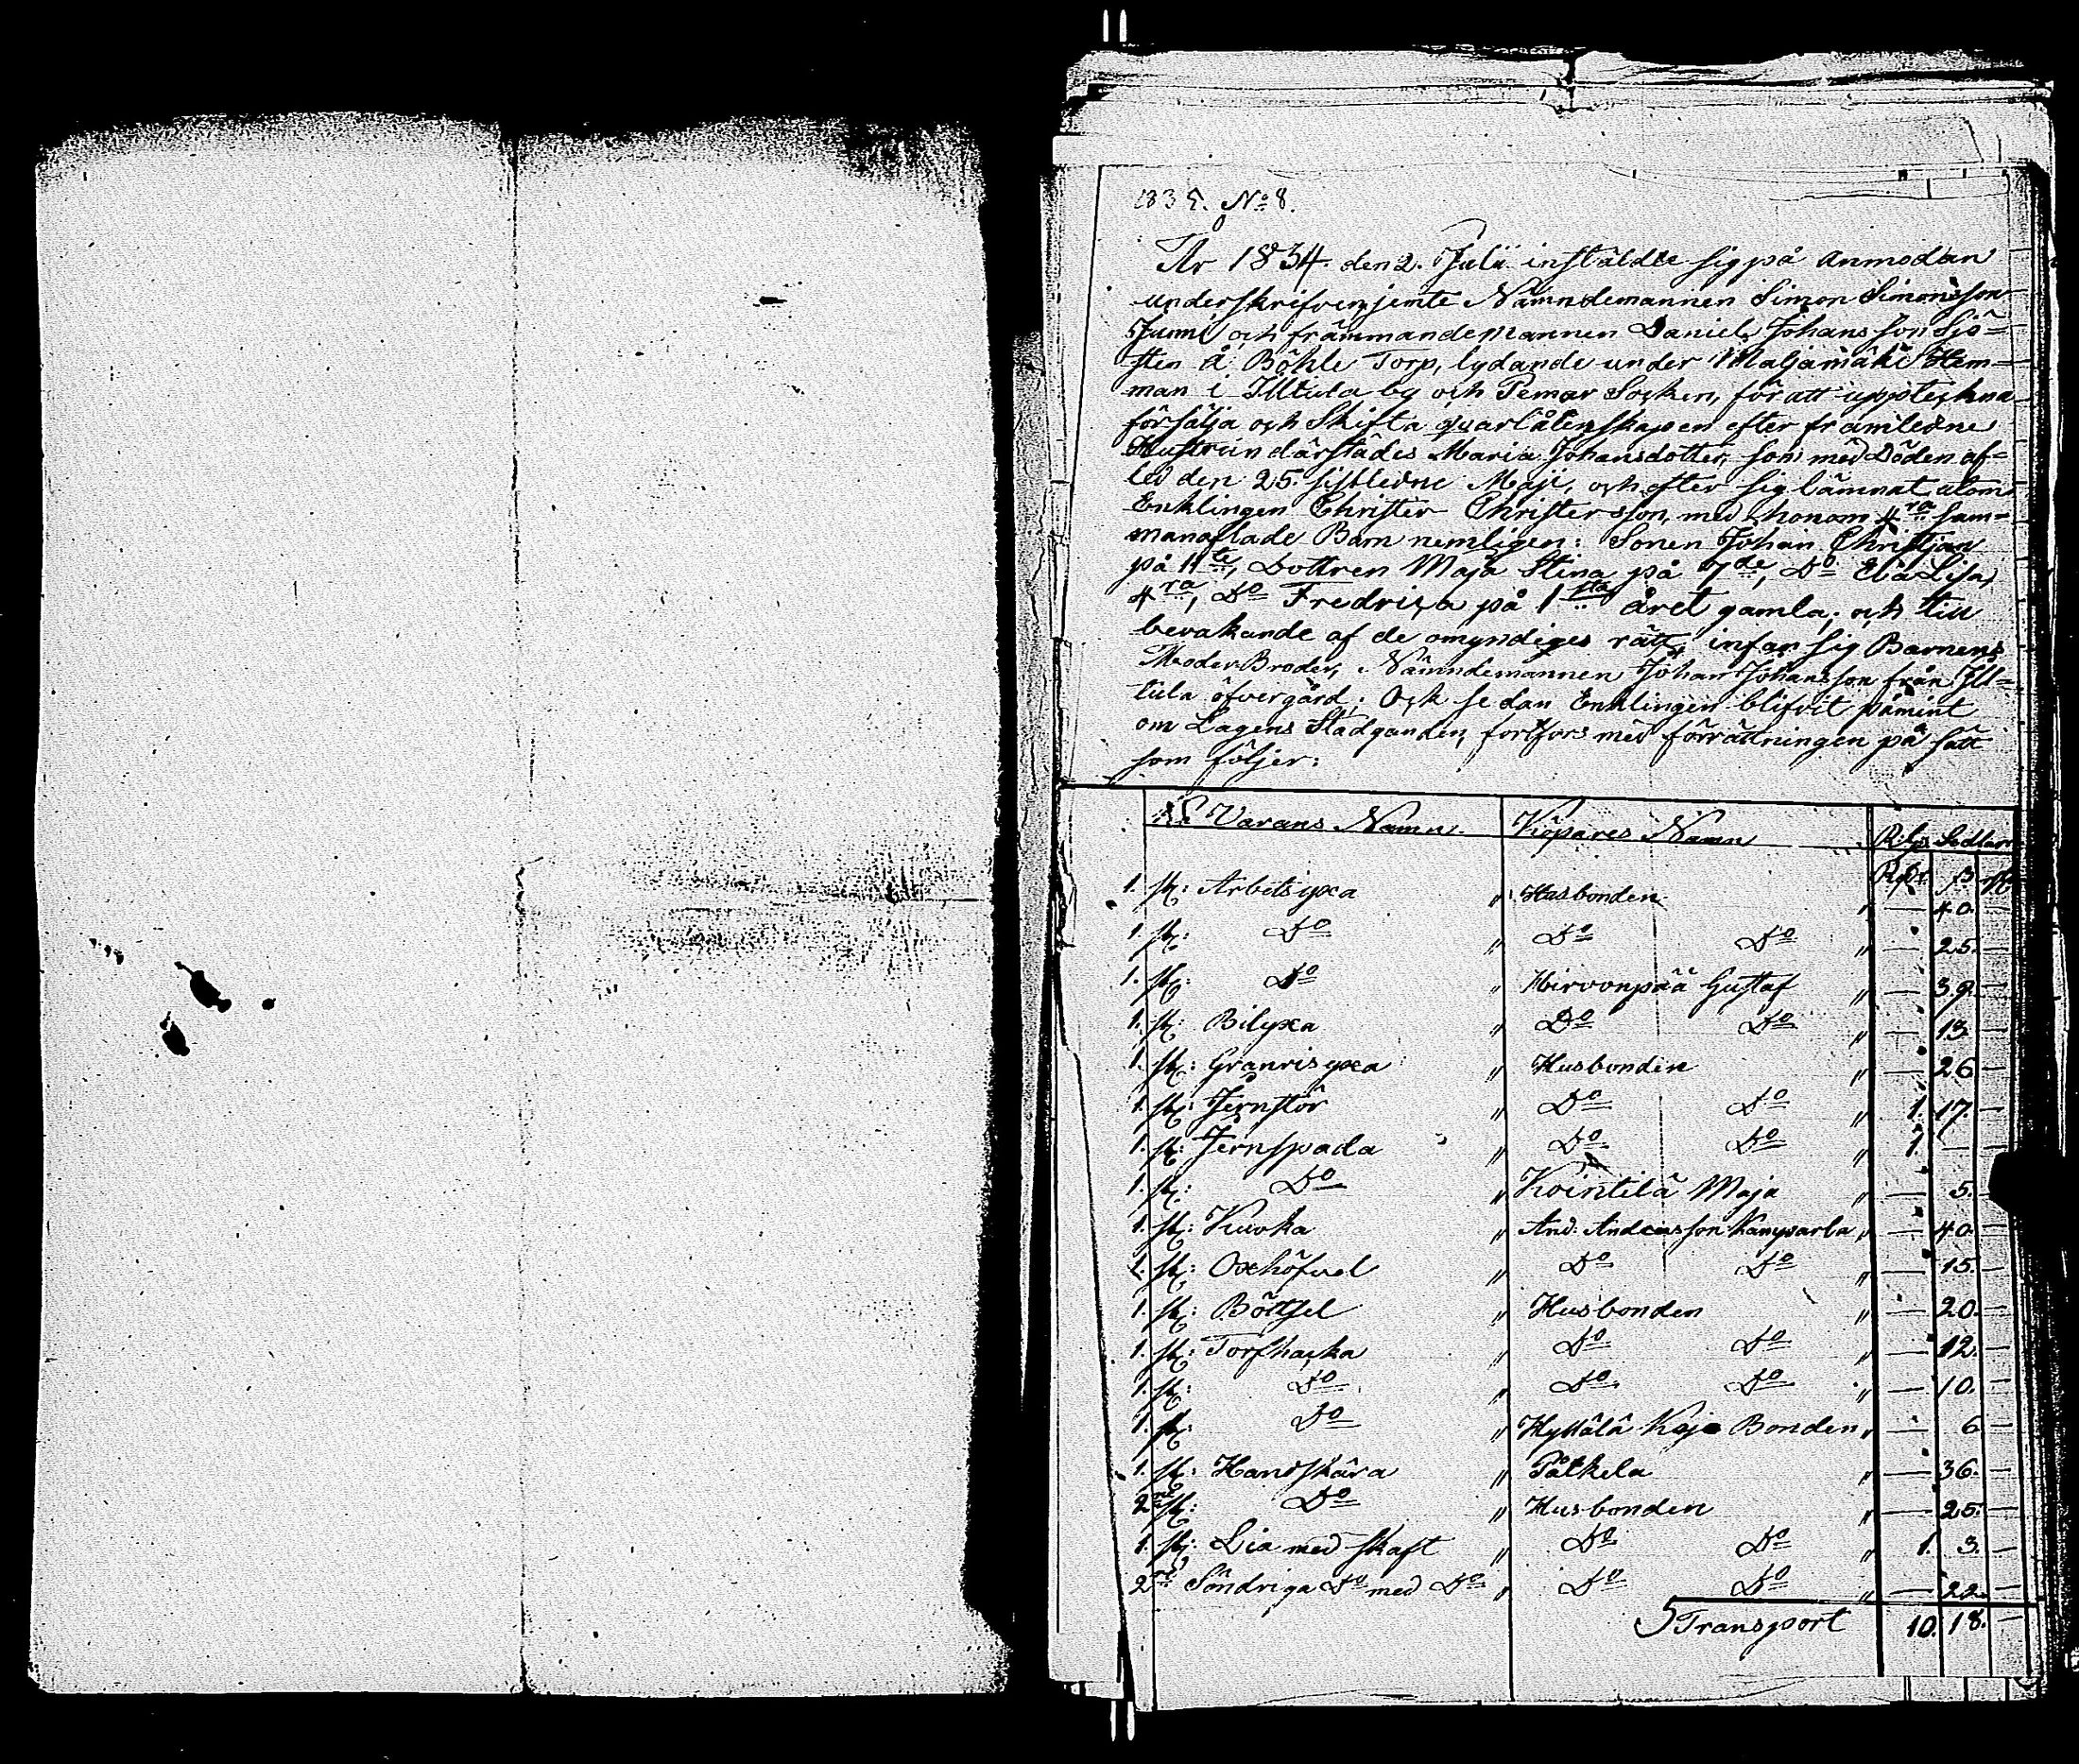 1835. No 8.
År 1834. den 2. Julii instäldte sig på anmodan
underskrifven, jemte Nämndemannen Simon Simonsson
Junni och främmande mannen Daniel Johansson Sjö=
sten å Böhle Torp, lydande under Maljamäki Hem=
man i Illtula by och Pemar Socken, för att uppteckna
försälja och Skifta qvarlåtenskapen efter framledne
Hustrun därstädes Maria Johansdotter, som med Döden af=
led den 25. sistledne Maji, och efter sig lämnat utom
Enklingen Christer Christersson, med honom 4ra sam=
manaflade Barn nemligen: Sonen Johan Christjan
på 11te, Dottren Maja Stina på 7de, Do Eva Lisa,
4ra, Do Fredrica på 1sta året gamla; och till
bevakande af de omyndiges rätt, infan sig Barnens
Moder Broder, Nämndemannen Johan Johansson från Ill=
tula öfvergård; Och sedan Enklingen blifvit påmint
om Lagens Stadganden, fortfors med förrättningen på sätt
som följer:
Varans Namn Köpares Namn R:gs Sedlar
Rdr ß rst
1. st: Arbetsyxa " Husbonden " — 40. —
1. st: Do " Do Do " — 25. —
1. st: Do " Hirvonpää Gustaf " — 39. —
1. st: Bilyxa " Do Do " — 13. —
1. st: Granrisyxa " Husbonden " — 26 —
1. st: Jernstör " Do Do " 1. 17. —
1. st: Jernspada " Do Do " 1. — —
1. st: Do " Kointilä Maja " — 5. —
1. st: Kuoka " And: Andersson Kangvarla " — 40. —
1. st: Oxhöfvel " Do Do " — 15. —
1. st: Böttsel " Husbonden " — 20. —
1. st: Torfhacka " Do Do " — 12. —
1. st: Do " Do Do " — 10. —
1. st: Do " Hyttälä Kaja Bonden " — 6 —
1. st: Handskära " Pälkela " — 36. —
2 st: Do " Husbonden " — 25. —
1. st: Lia med skaft " Do Do " 1. 3. —
2 Söndriga Do med Do " Do Do " — 22. —
Transport 10. 18. —